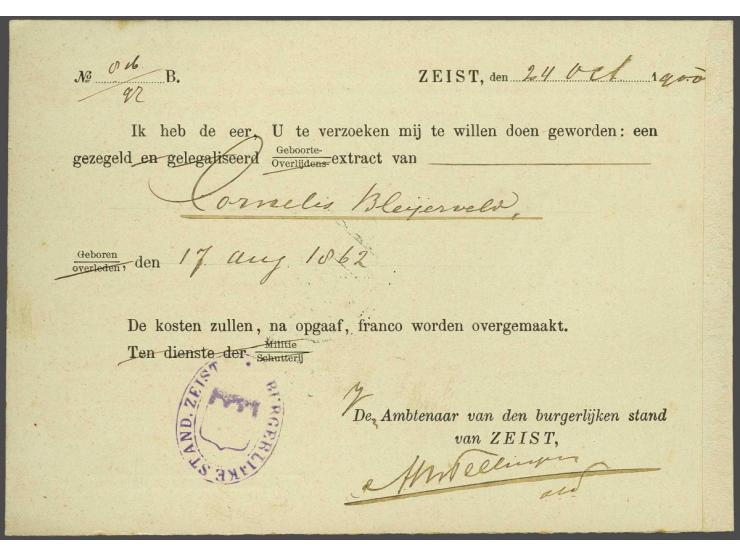 № 86/92 B. ZEIST, den 24 Oct. 1900
Ik heb de eer, U te verzoeken mij te willen doen geworden: een
gezegeld en gelegaliseerd Geboorte-
Overlijdens-extract van
Cornelis Bleijerveld,
Geboren
overleden, den 17 Aug. 1862
De kosten zullen, na opgaaf, franco worden overgemaakt.
Ten dienste der Militie
Schutterij
BURGERLIJKE STAND. ZEIST
De Ambtenaar van den burgerlijken stand
van ZEIST,